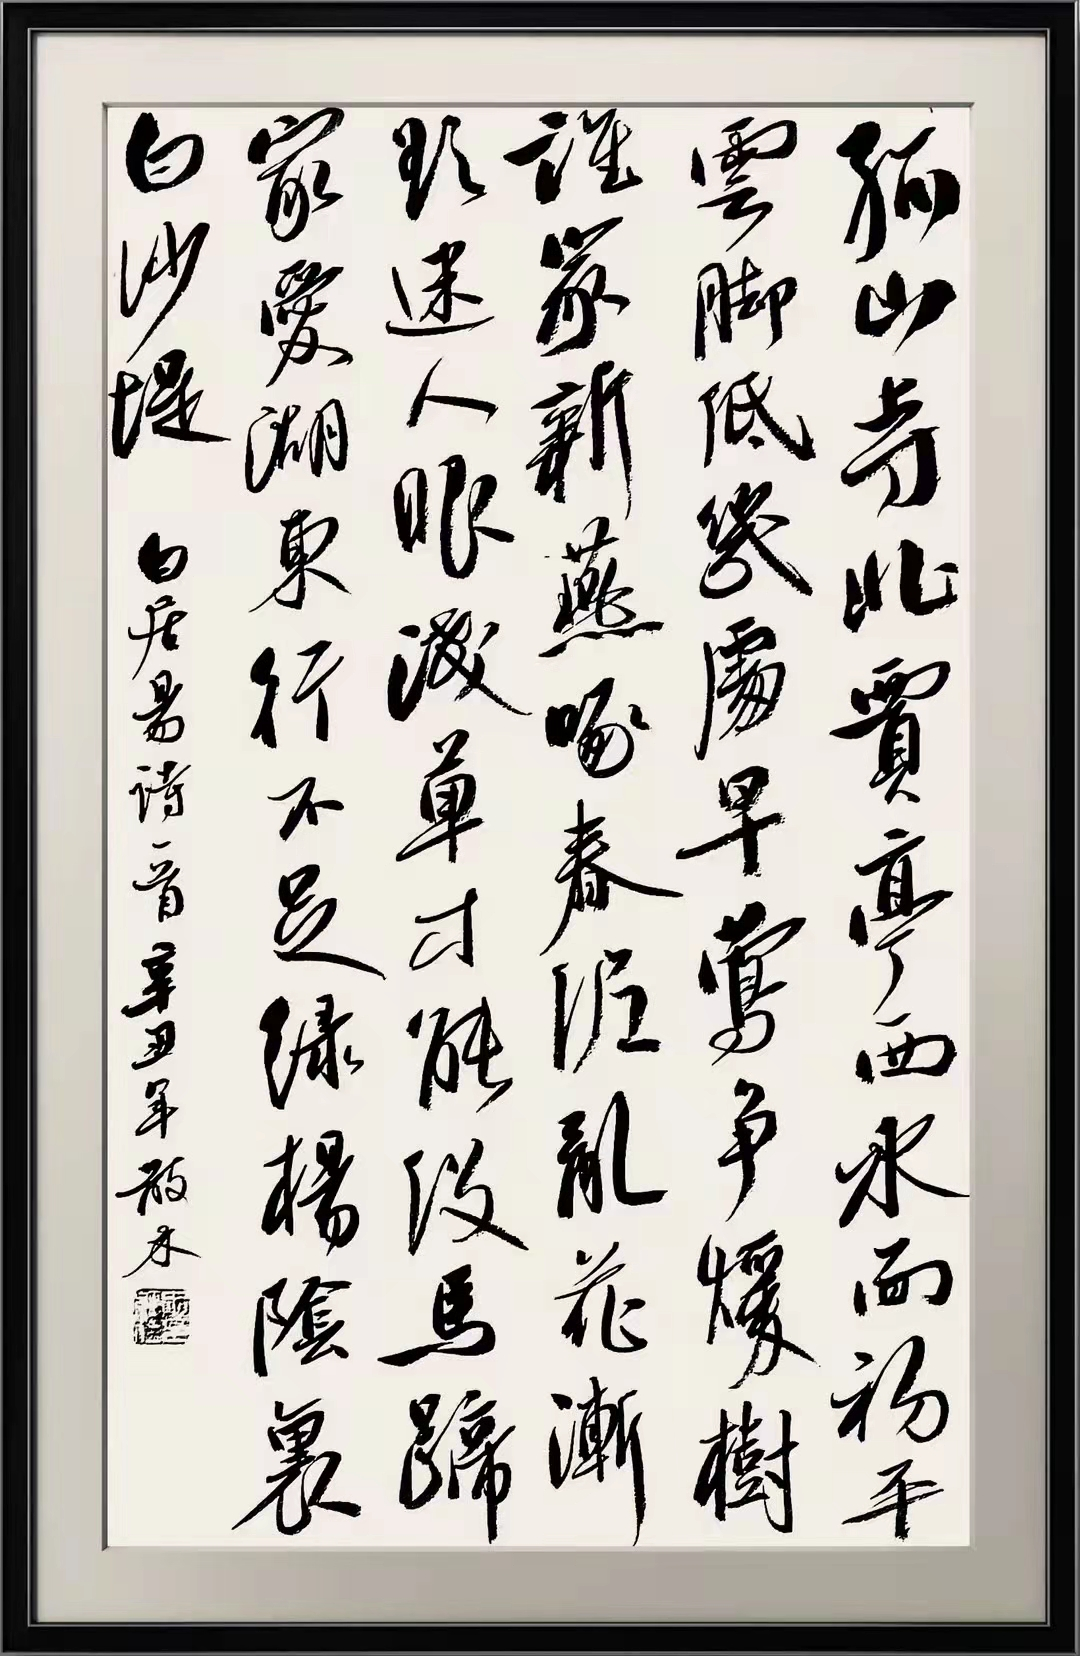 孤山寺北賈亭西水面初平
雲脚低幾處早鶯争煖樹
誰家新燕啄春泥亂花漸
欲迷人眼淺草才能没馬蹄
最愛湖東行不足緑楊陰裏
白沙堤 白居易詩一首 辛丑年 木